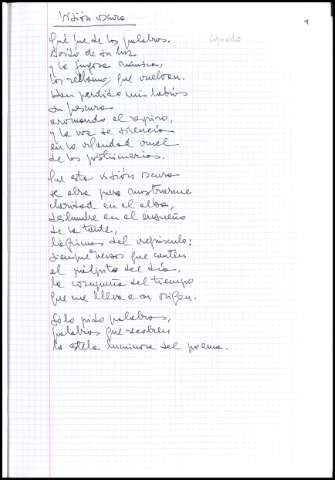 Visión oscura
9
Qué fue de las palabras.
Avido de su luz
y la fugosa
las reclamo, que vuelvan.
Han perdido mis labios
su frescura
aromando el respiro,
y la voz se silencia
en la orfandad cruel
de las postrimerías.
Que esta visión oscura
se abra para mostrarme
claridad en el alba,
deslumbre en el ensueño
de la tarde,
lágrimas del crepúsculo;
siempre versos que canten
el pálpito del día,
la del tiempo
que me lleva a su origen.
Sólo pido palabras,
palabras que
la estela luminosa del poema.